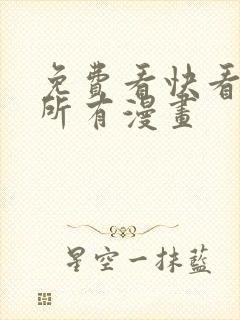 免費看快看
所有漫畫
星空一抹藍